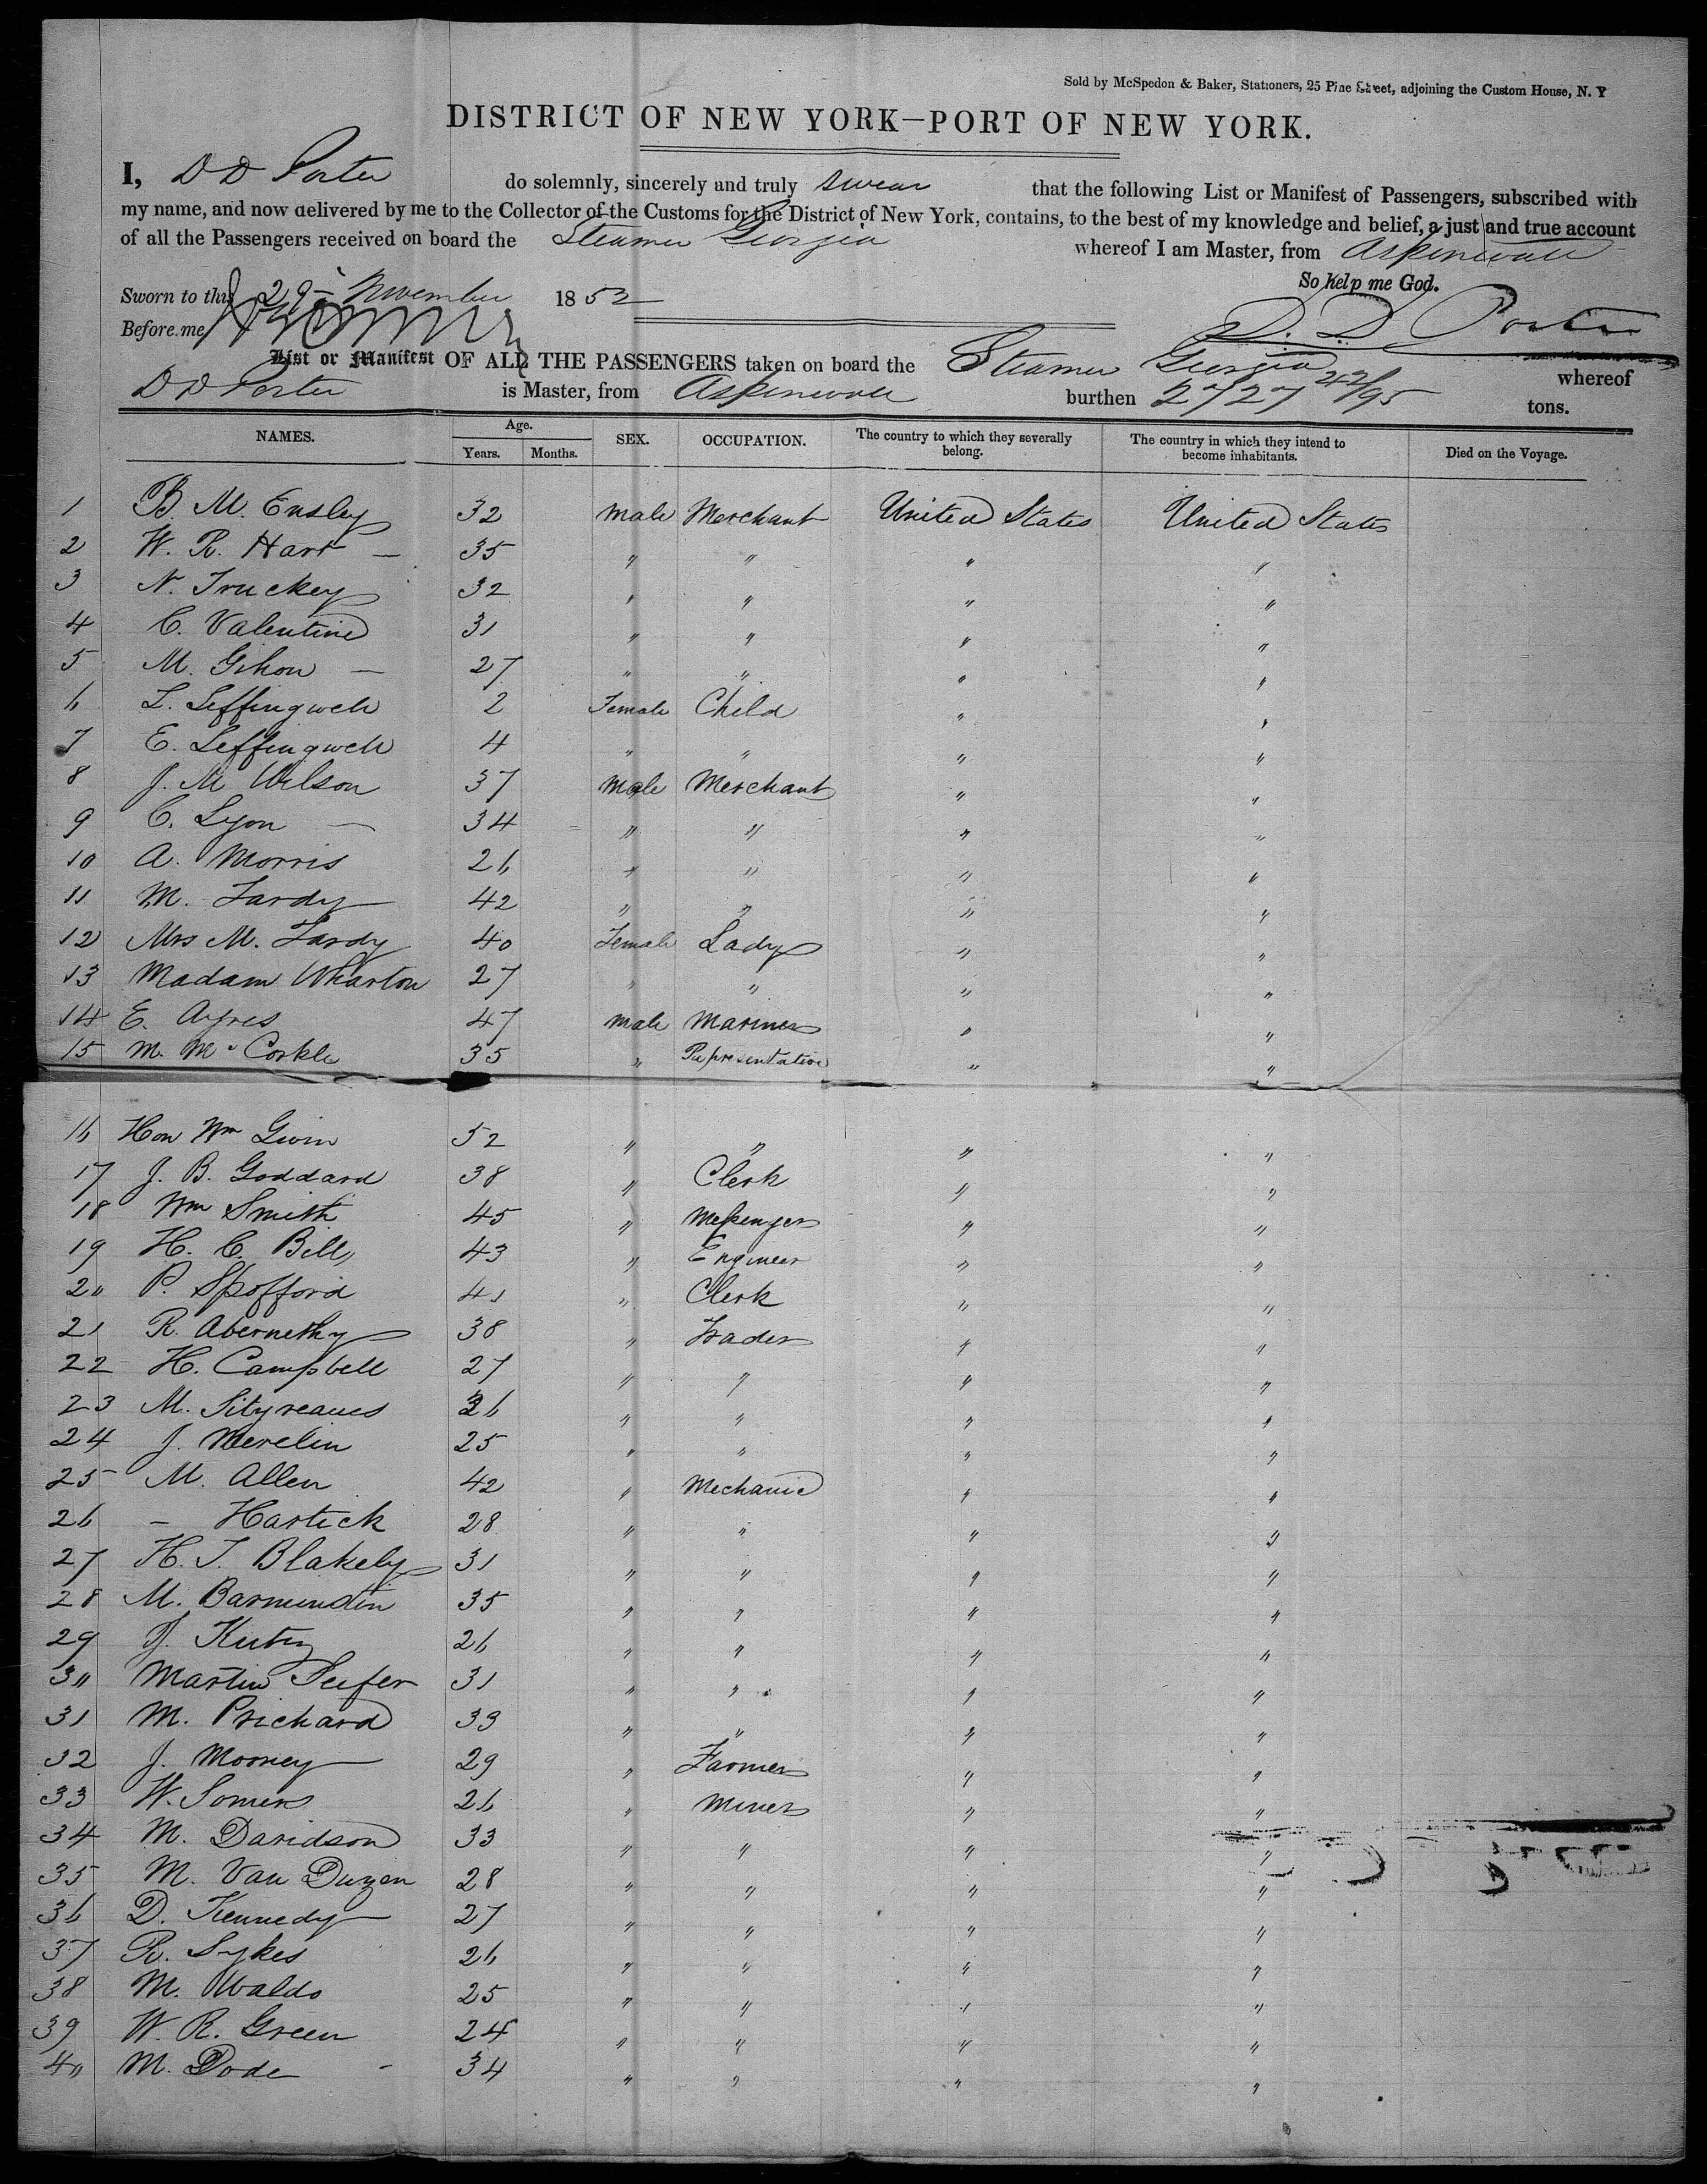 Sold by McSpedon & Baker, Stationers, 25 Pine Street, adjoining the Custom House, N. Y
DISTRICT OF NEW YORK—PORT OF NEW YORK.
I, D D Porter do solemnly, sincerely and truly swear that the following List or Manifest of Passengers, subscribed with
my name, and now delivered by me to the Collector of the Customs for the District of New York, contains, to the best of my knowledge and belief, a just and true account
of all the Passengers received on board the Steamer Georgia whereof I am Master, from Aspinwall
So help me God.
Sworn to this 29 November 1852
Before me D. D. Porter
List or Manifest OF ALL THE PASSENGERS taken on board the Steamer Georgia whereof
D D Porter is Master, from Aspinwall burthen 2727 42/95 tons.
NAMES. Age. SEX. OCCUPATION. The country to which they severally belong. The country in which they intend to become inhabitants. Died on the Voyage.
Years. Months.
1 B. M. Ensley 32 male Merchant United States United States
2 W. R. Hart — 35 " " " "
3 N. Truckey 32 " " " "
4 C. Valentine 31 " " " "
5 M. Gihon — 27 " " " "
6 L. Leffingwell 2 Female Child " "
7 E. Leffingwell 4 " " " "
8 J. M Wilson 37 male Merchant " "
9 C. Lyon — 34 " " " "
10 A. Morris 26 " " " "
11 M. Tardy 42 " " " "
12 Mrs M. Tardy 40 Female Lady " "
13 Madam Wharton 27 " " " "
14 E. Ayres 47 male Mariner " "
15 M. Mc Corkle 35 " Representative " "
16 Hon Wm Gwin 52 " " " "
17 J. B. Goddard 38 " Clerk " "
18 Wm Smith 45 " Messenger " "
19 H. C. Bill 43 " Engineer " "
20 P. Spofford 41 " Clerk " "
21 R. Abernethy 38 " Trader " "
22 H. Campbell 27 " " " "
23 M. Sitgreaves 36 " " " "
24 J. Merelin 25 " " " "
25 M. Allen 42 " Mechanic " "
26 — Hartick 28 " " " "
27 H. T. Blakely 31 " " " "
28 M. Barmundin 35 " " " "
29 J. 26 " " " "
30 Martin 31 " " " "
31 M. Prichard 33 " " " "
32 J. Mooney 29 " Farmer " "
33 W. Somers 26 " Miner " "
34 M. Davidson 33 " " " "
35 M. Van Duzen 28 " " " "
36 D. Kennedy 27 " " " "
37 R. Sykes 26 " " " "
38 M. Waldo 25 " " " "
39 W. R. Green 24 " " " "
40 M. Dode - 34 " " " "